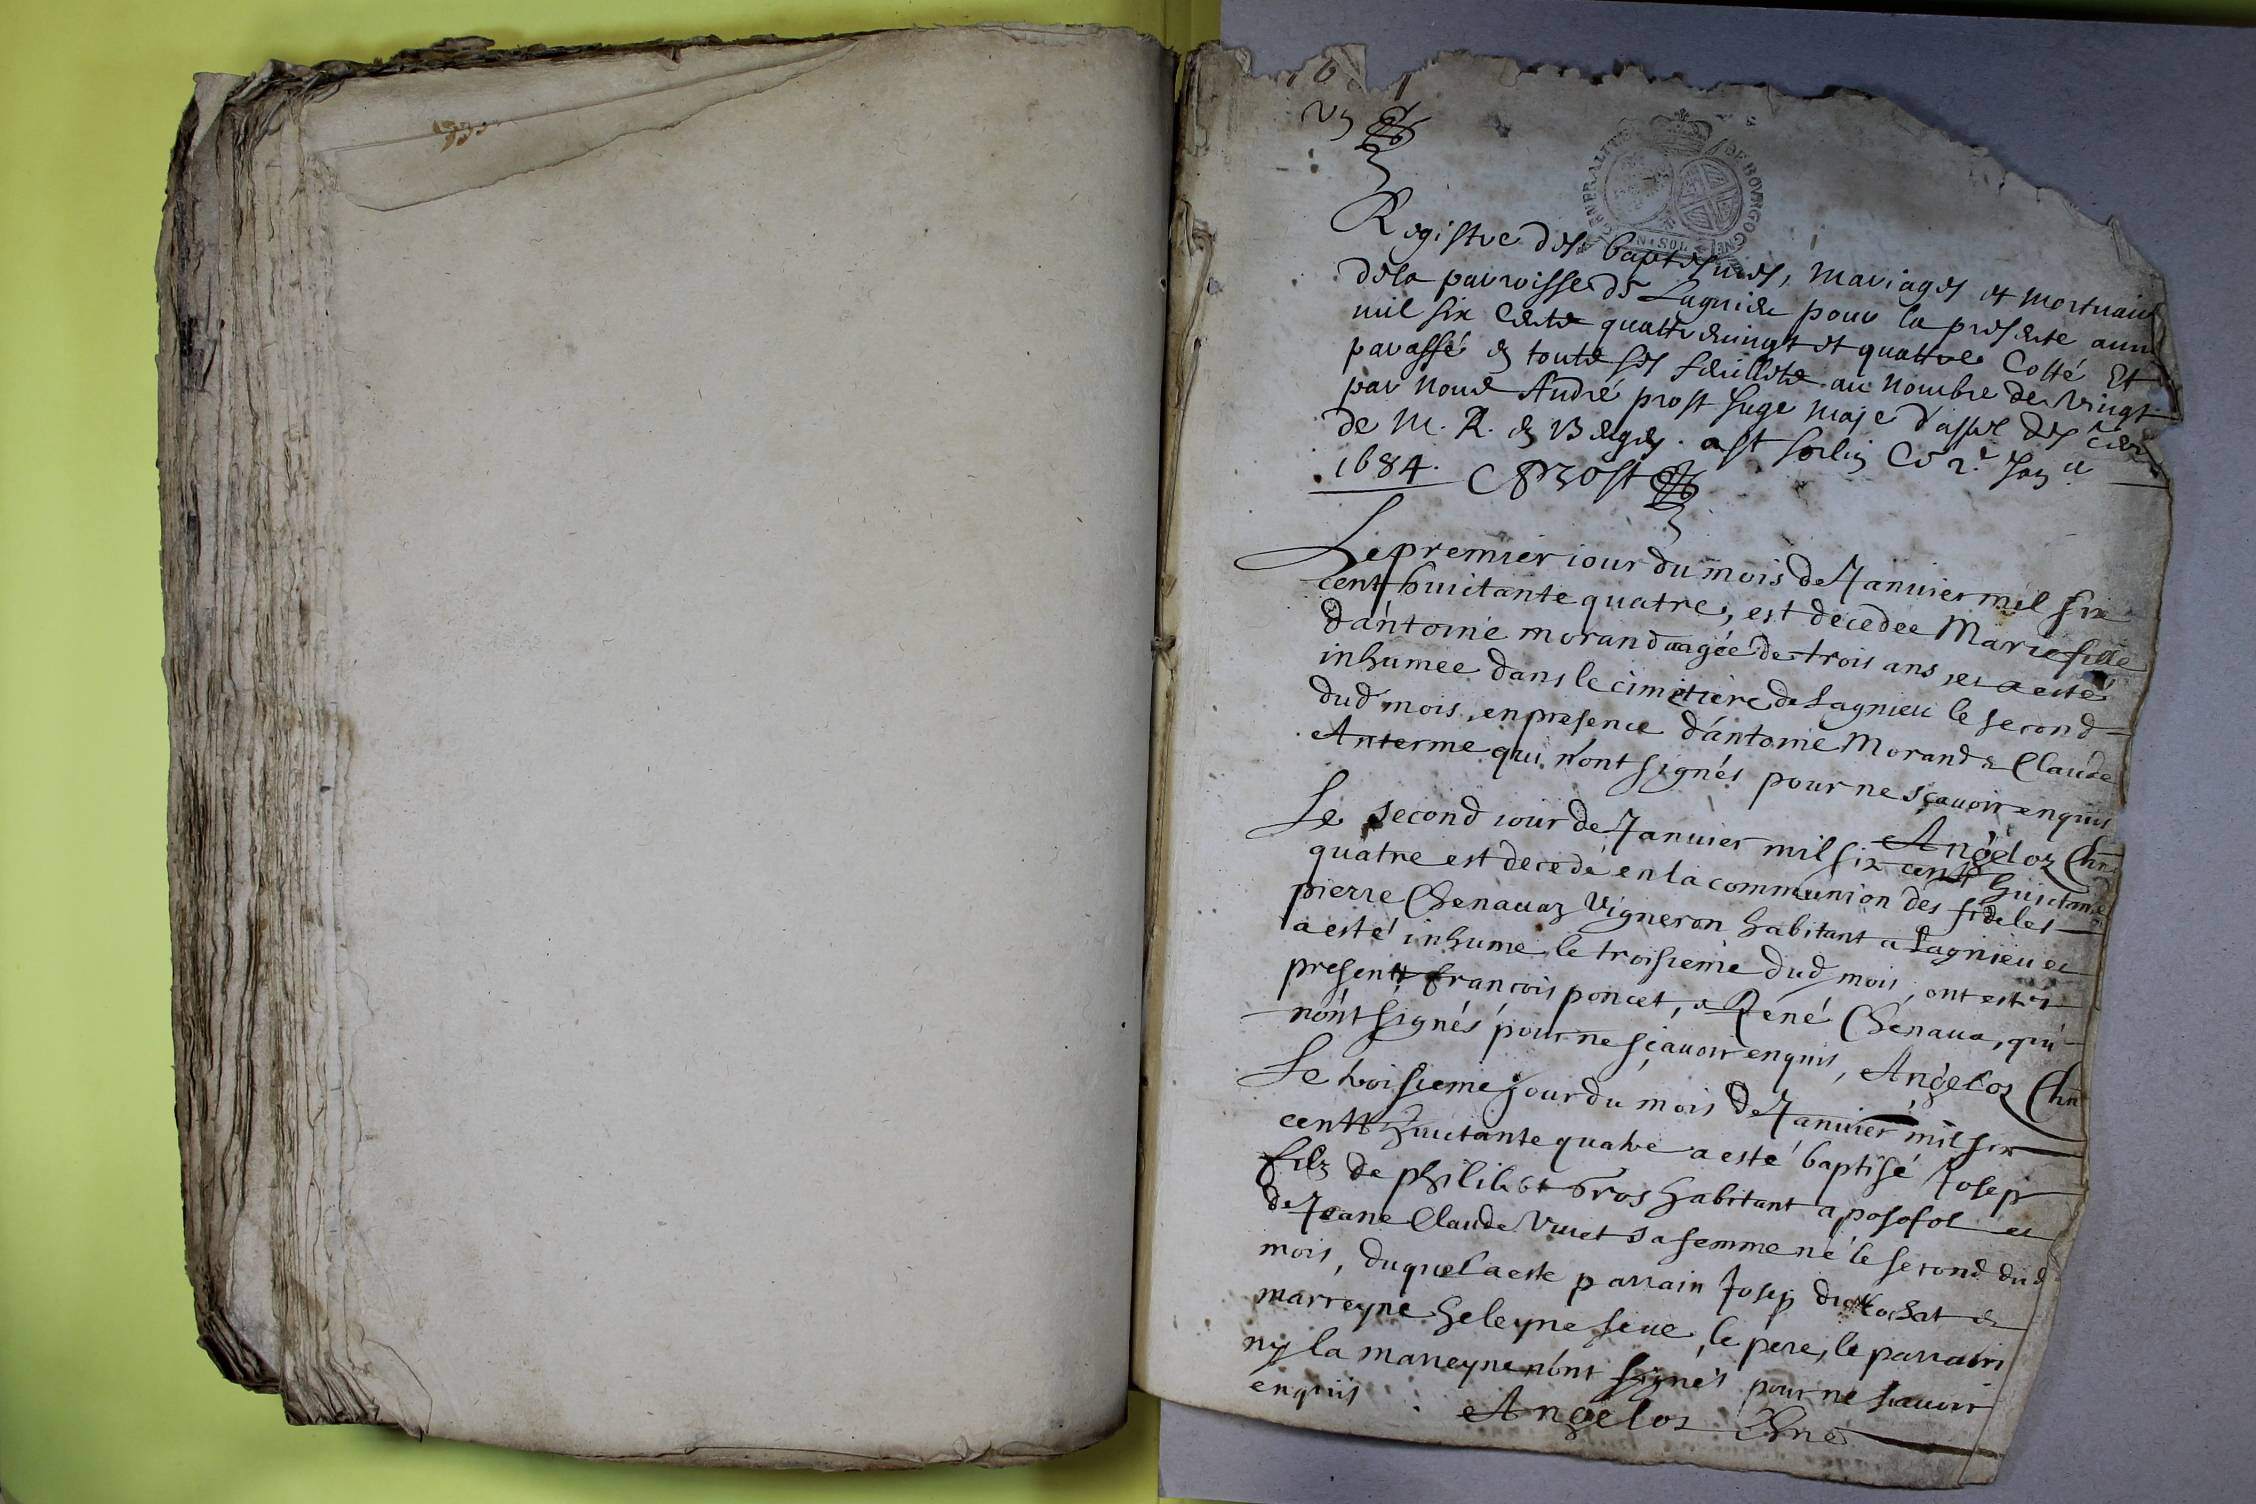 GENERALITE DE BOVRGOGNE
Registre des baptesmes, mariages et mortuair
dela parroisse de Lagnieu pour la presente anné
mil six cents quattrevingt et quattre Cotté Et
parassé en toutes ses feuillets au nombre de vingt
par nous André prost Juge maje d'appel des
de M. R. en Bugey. a St Sorlin Ce 2.e Jan
1684. Prost
Le premier iour du mois de Januier mil six
cent huictante quatre, est decedée Marie fille
d'antoine morand aagée de trois ans, et a esté
inhumée dans le cimetiere de Lagnieu le second
dud mois, en presence d'antoine Morand & Claude
Anterme qui n'ont signés pour ne sçauoir enquis
Angeloz Chne
Le second iour de Januier mil six cent huictante
quatre est decedé en la communion des fideles
pierre Chenauaz Vigneron habitant a Lagnieu et
a esté inhumé le troisieme dud mois, ont estés
present françois poncet, & René Chenaua, qui
n'ont signés pour ne sçauoir enquis, Angeloz Chne
Le troisieme jour du mois de Januier mil six
cent huictante quatre a esté baptisé Joseph
filz de philibet Gros habitant a posafol et
de Jeane Claude Viuet sa femme né le second dud
mois, duquel a este parrain Josep du Rochat &
marreyne heleyne seue, le pere, le parrain
ny la marreyne n'ont signés pour ne scauoir
enquis Angeloz Chne